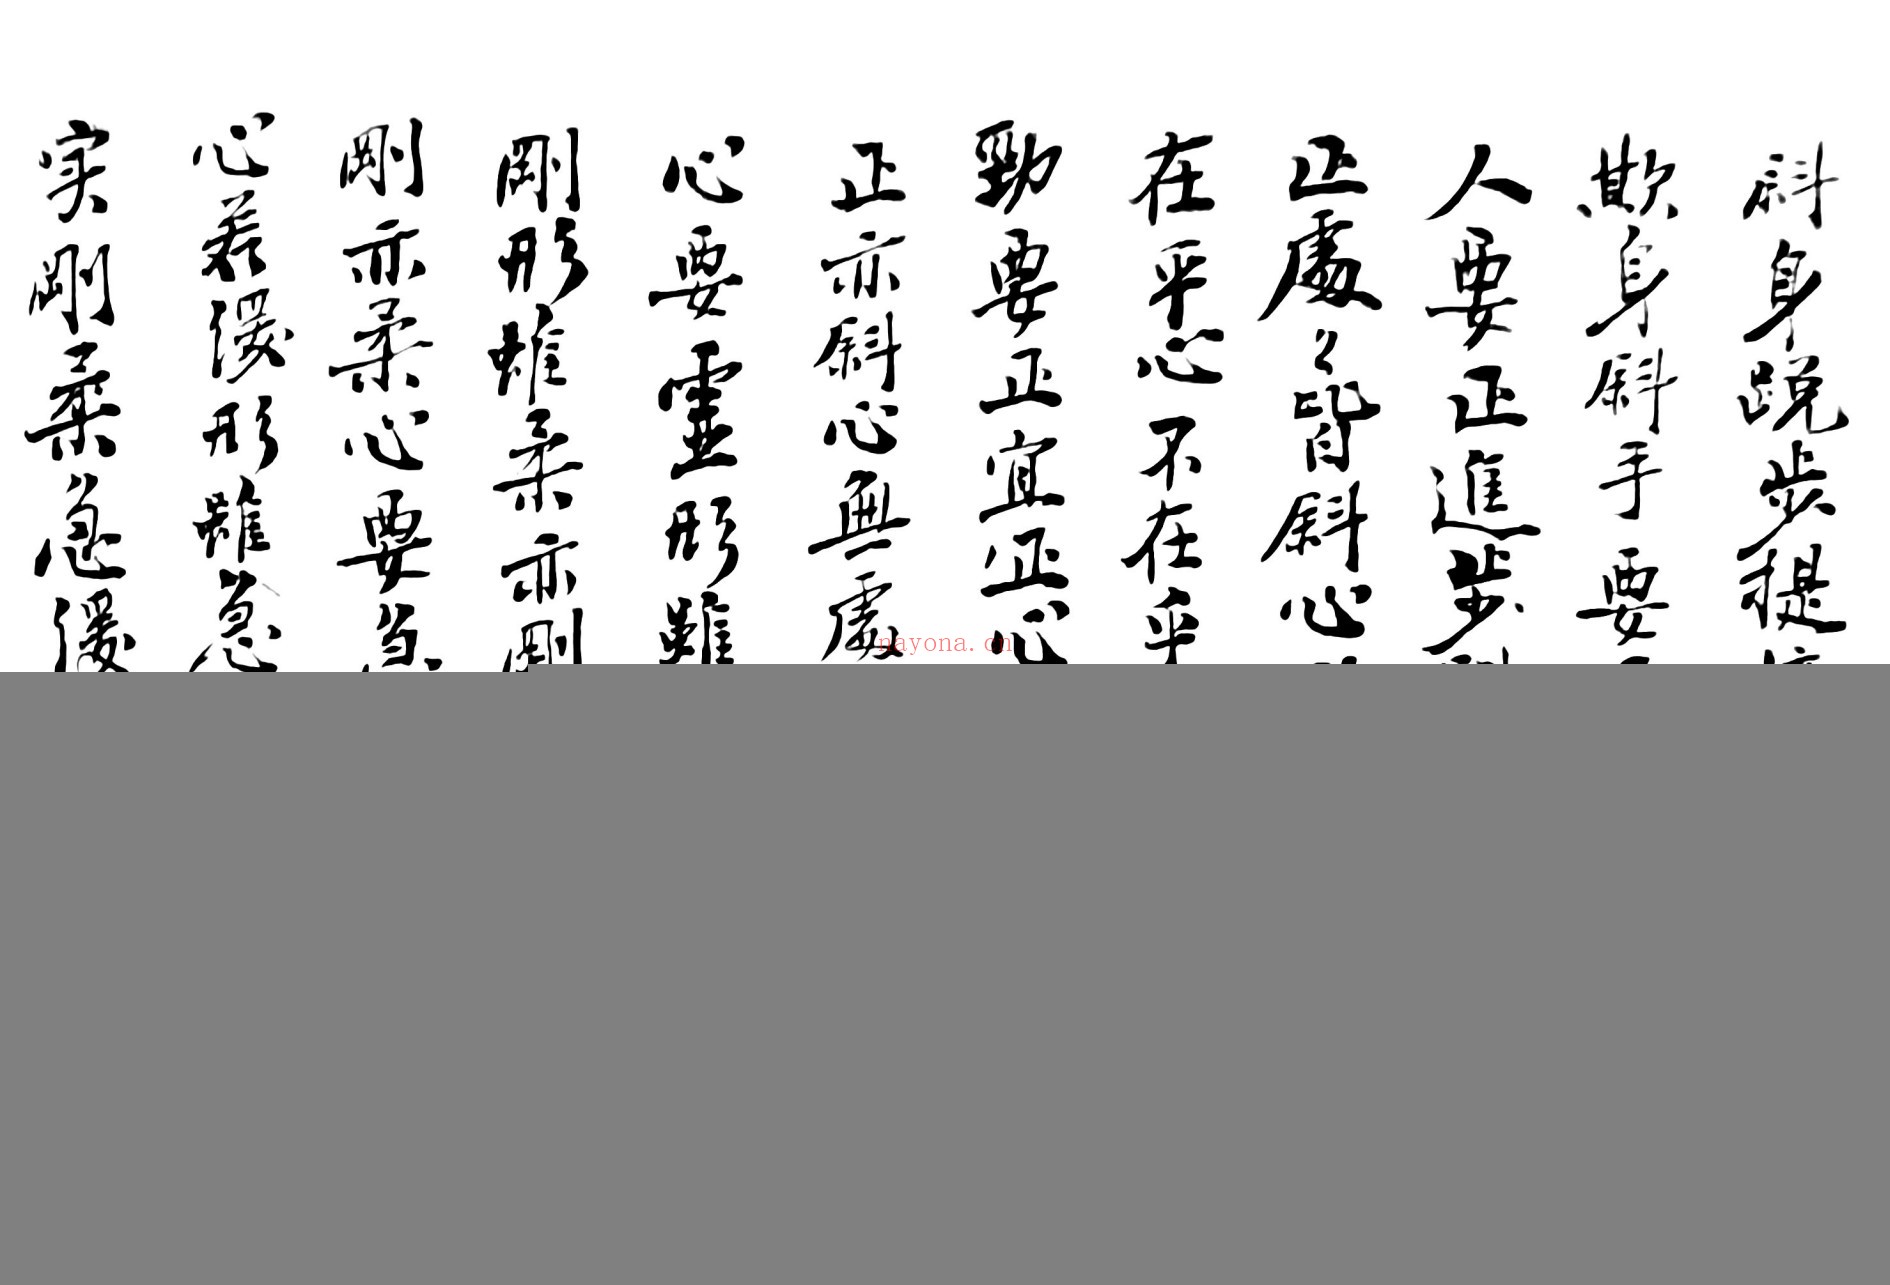 斜身跨步提
欺身斜手要
人要正進步
正處々皆斜心
在乎心不在乎
勁要正宜正心
正亦斜心無處
心要靈形雖
剛形雖柔亦剛
剛亦柔心要急
心若緩形雖急
实剛柔急緩
nayona.cn